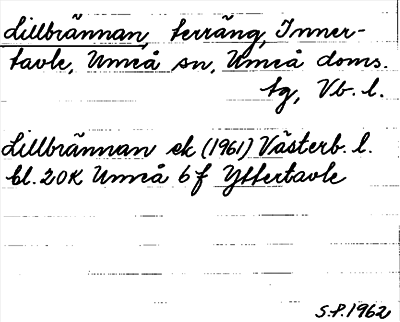 Lillbrännan, terräng, Inner-
tavle, Umeå sn, Umeå doms.
tg, Vb. l.
Lillbrännan ek (1961) Västerb. l.
bl. 20K Umeå 6f Yttertavle
S.P. 1962